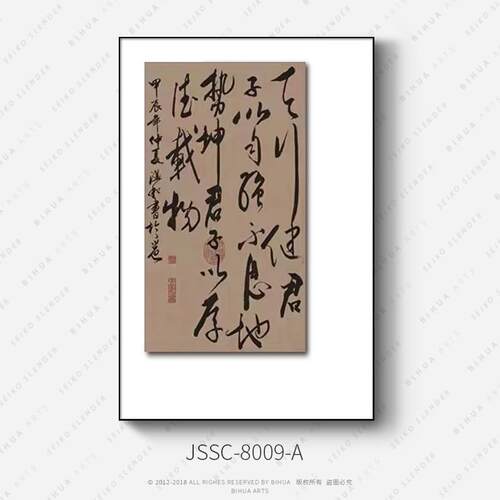 天行健君
子以自強不息地
勢坤君子以厚
德載物
甲辰年仲夏
JSSC-8009-A
© 2012-2018 ALL RIGHTS RESERVED BY BIHUA 版权所有 盗图必究
BIHUA ARTS
SEIKO SLENDER
BIHUA ARTS